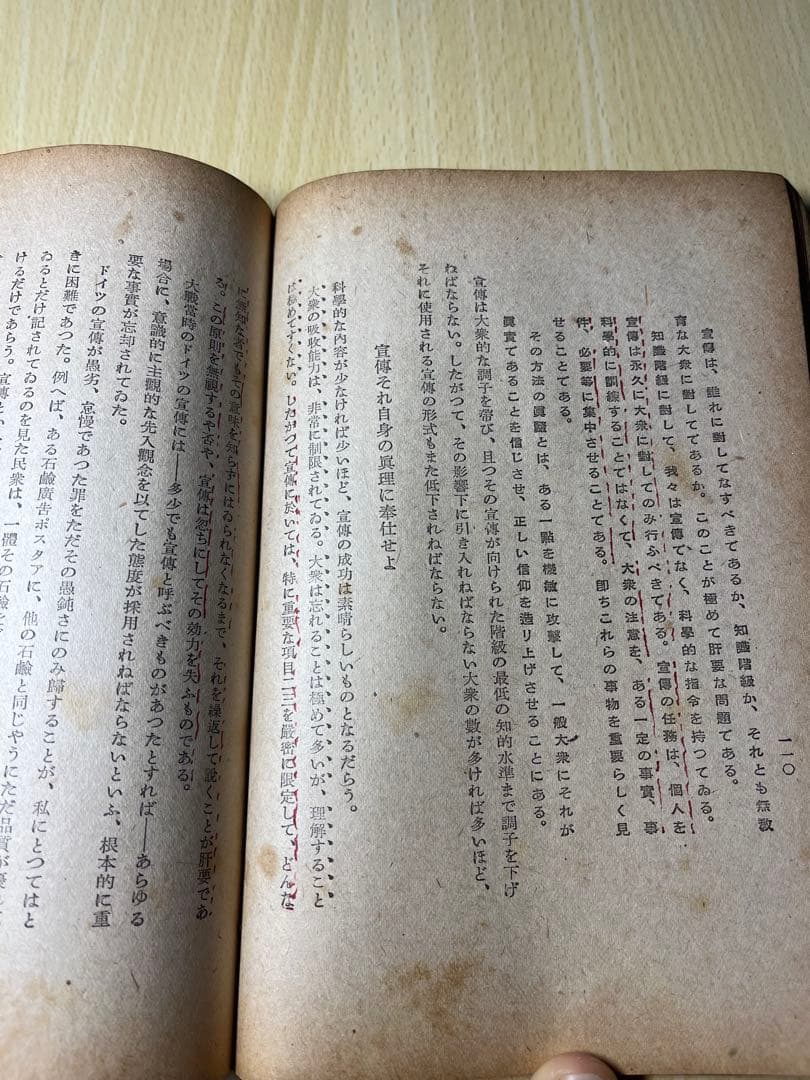 一一〇
宣傳は、誰れに對してなすべきであるか、知識階級か、それとも無敎
育な大衆に對してであるか。このことが極めて肝要な問題である。
知識階級に對して、我々は宣傳でなく、科學的な指令を持つてゐる。
宣傳は永久に大衆に對してのみ行ふべきである。宣傳の任務は、個人を
科學的に訓練することではなくて、大衆の注意を、ある一定の事實、事
件、必要等に集中させることである。卽ちこれらの事物を重要らしく見
せることである。
その方法の眞髓とは、ある一點を機敏に攻擊して、一般大衆にそれが
眞實であることを信じさせ、正しい信仰を造り上げさせることにある。
宣傳は大衆的な調子を帶び、且つその宣傳が向けられた階級の最低の知的水準まで調子を下げ
ねばならない。したがつて、その影響下に引き入れねばならない大衆の數が多ければ多いほど、
それに使用される宣傳の形式もまた低下されねばならない。
宣傳それ自身の眞理に奉仕せよ
科學的な內容が少なければ少いほど、宣傳の成功は素晴らしいものとなるだらう。
大衆の吸收能力は、非常に制限されてゐる。大衆は忘れることは極めて多いが、理解すること
は極めてすくない。したがつて宣傳に於いては、特に重要な項目二三を嚴密に限定して、どんな
に無知な者でもその意味を知らずにはゐられなくなるまで、それを繰返して說くことが肝要であ
る。この原則を無視するや否や、宣傳は忽ちにしてその効力を失ふものである。
大戰當時のドイツの宣傳には——多少でも宣傳と呼ぶべきものがあつたとすれば——あらゆる
場合に、意識的に主觀的な先入觀念を以てした態度が採用されねばならないといふ、根本的に重
要な事實が忘却されてゐた。
ドイツの宣傳が愚劣、怠慢であつた罪をただその愚鈍さにのみ歸することが、私にとつてはと
きに困難であつた。例へば、ある石鹼廣告ポスタアに、他の石鹼と同じやうにただ品質が優れて
ゐるとだけ記されてゐるのを見た民衆は、一體その石鹼を
けるだけであらう。宣傳